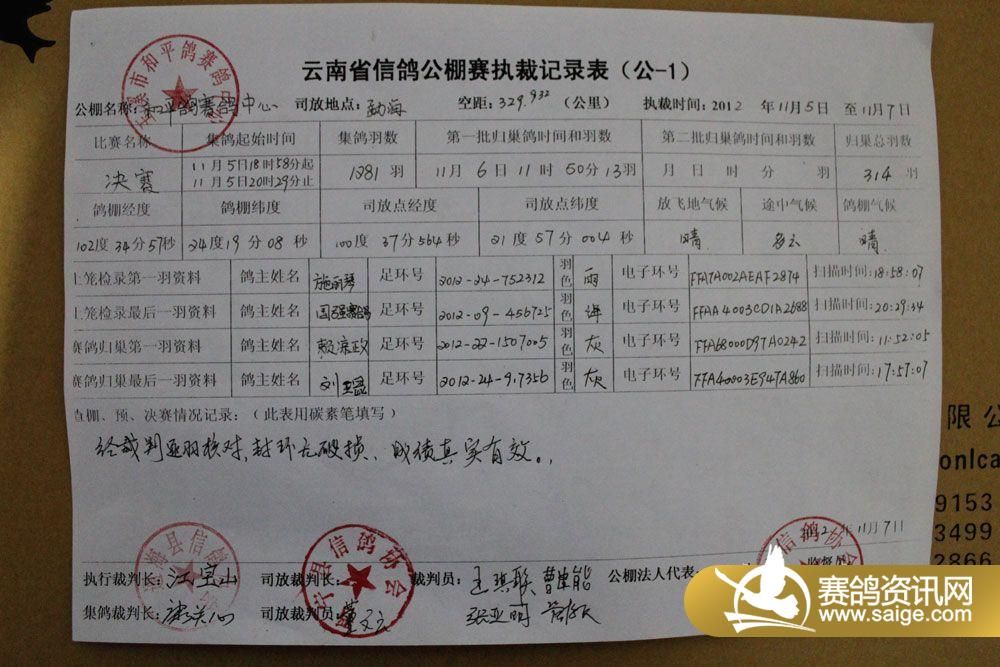 云南省信鸽公棚赛执裁记录表（公-1）
公棚名称：和平鸽赛鸽中心 司放地点：勐海 空距：329.932（公里） 执裁时间：2012 年11月5日 至11月7日
比赛名称 集鸽起始时间 集鸽羽数 第一批归巢鸽时间和羽数 第二批归巢鸽时间和羽数 归巢总羽数
决赛 11月5日18时58分起 1281 羽 11月 6 日 11 时 50分13羽 月 日 时 分 羽 314 羽
11月5日20时29分止
鸽棚经度 鸽棚纬度 司放点经度 司放点纬度 放飞地气候 途中气候 鸽棚气候
102度 34分57秒 24度19分08秒 100度 37分564秒 21度57分004秒 晴 多云 晴
上笼检录第一羽资料 鸽主姓名 施丽琴 足环号 2012-24-752312 羽色 雨 电子环号 FFA7A002AEAF2874 扫描时间:18:58:07
上笼检录最后一羽资料 鸽主姓名 足环号 2012-09-456725 羽色 绛 电子环号 FFAA4003CD1A2688 扫描时间:20:29:34
赛鸽归巢第一羽资料 鸽主姓名 足环号 2012-22-1507005 羽色 灰 电子环号 FFA68000D97A0242 扫描时间:11:52:05
赛鸽归巢最后一羽资料 鸽主姓名 足环号 2012-24-917356 羽色 灰 电子环号 FFA40003E947A860 扫描时间:17:57:07
查棚、预、决赛情况记录：（此表用碳素笔填写）
经裁判逐羽核对，封环无破损、成绩真实有效。
年11月7日
执行裁判长：江宝山 司放裁判长： 裁判员： 王琪联 曹建能 公棚法人代表：
集鸽裁判长： 司放裁判员： 张亚明
市和平鸽赛鸽中心
海县信鸽
县信鸽协会
信鸽协会
限公
onlca
9153
3499
2866
赛鸽资讯网
www.saige.com